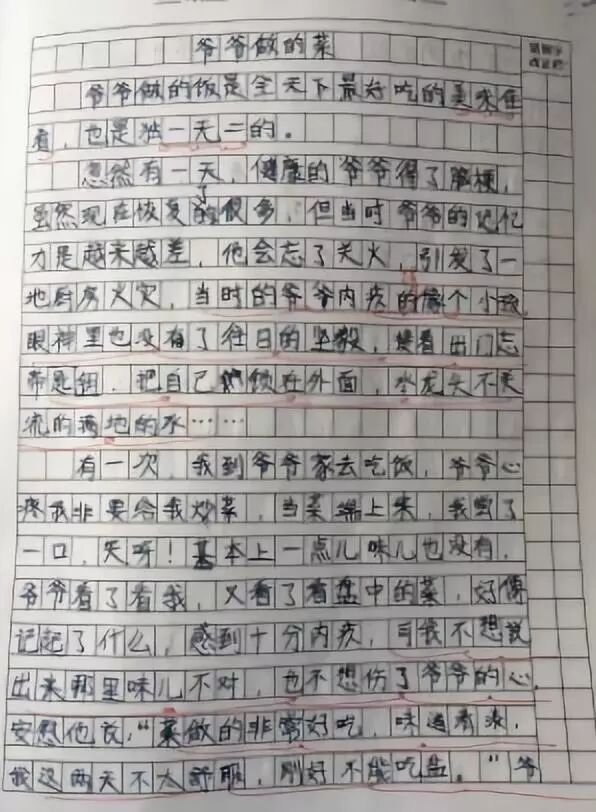 爷爷做的菜
爷爷做的饭是全天下最好吃的美味佳
肴，也是独一无二的。
忽然有一天，健康的爷爷得了脑梗，
虽然现在恢复了很多，但当时爷爷的记忆
力是越来越差，他会忘了关火，引发了一
地厨房火灾，当时的爷爷内疚的像个小孩
眼神里也没有了往日的坚毅，接着出门忘
带匙钥，把自己锁在外面，水龙头不关
流的满地的水……
有一次，我到爷爷家去吃饭，爷爷心
疼我非要给我炒菜，当菜端上来，我尝了
一口，天呀！基本上一点儿味儿也没有，
爷爷看了看我，又看了看盘中的菜，好像
记起了什么，感到十分内疚，可我不想说
出来那里味儿不对，也不想伤了爷爷的心，
安慰他说：“菜做的非常好吃，味道有淡，
我这两天不太舒服，刚好不能吃盐。”爷